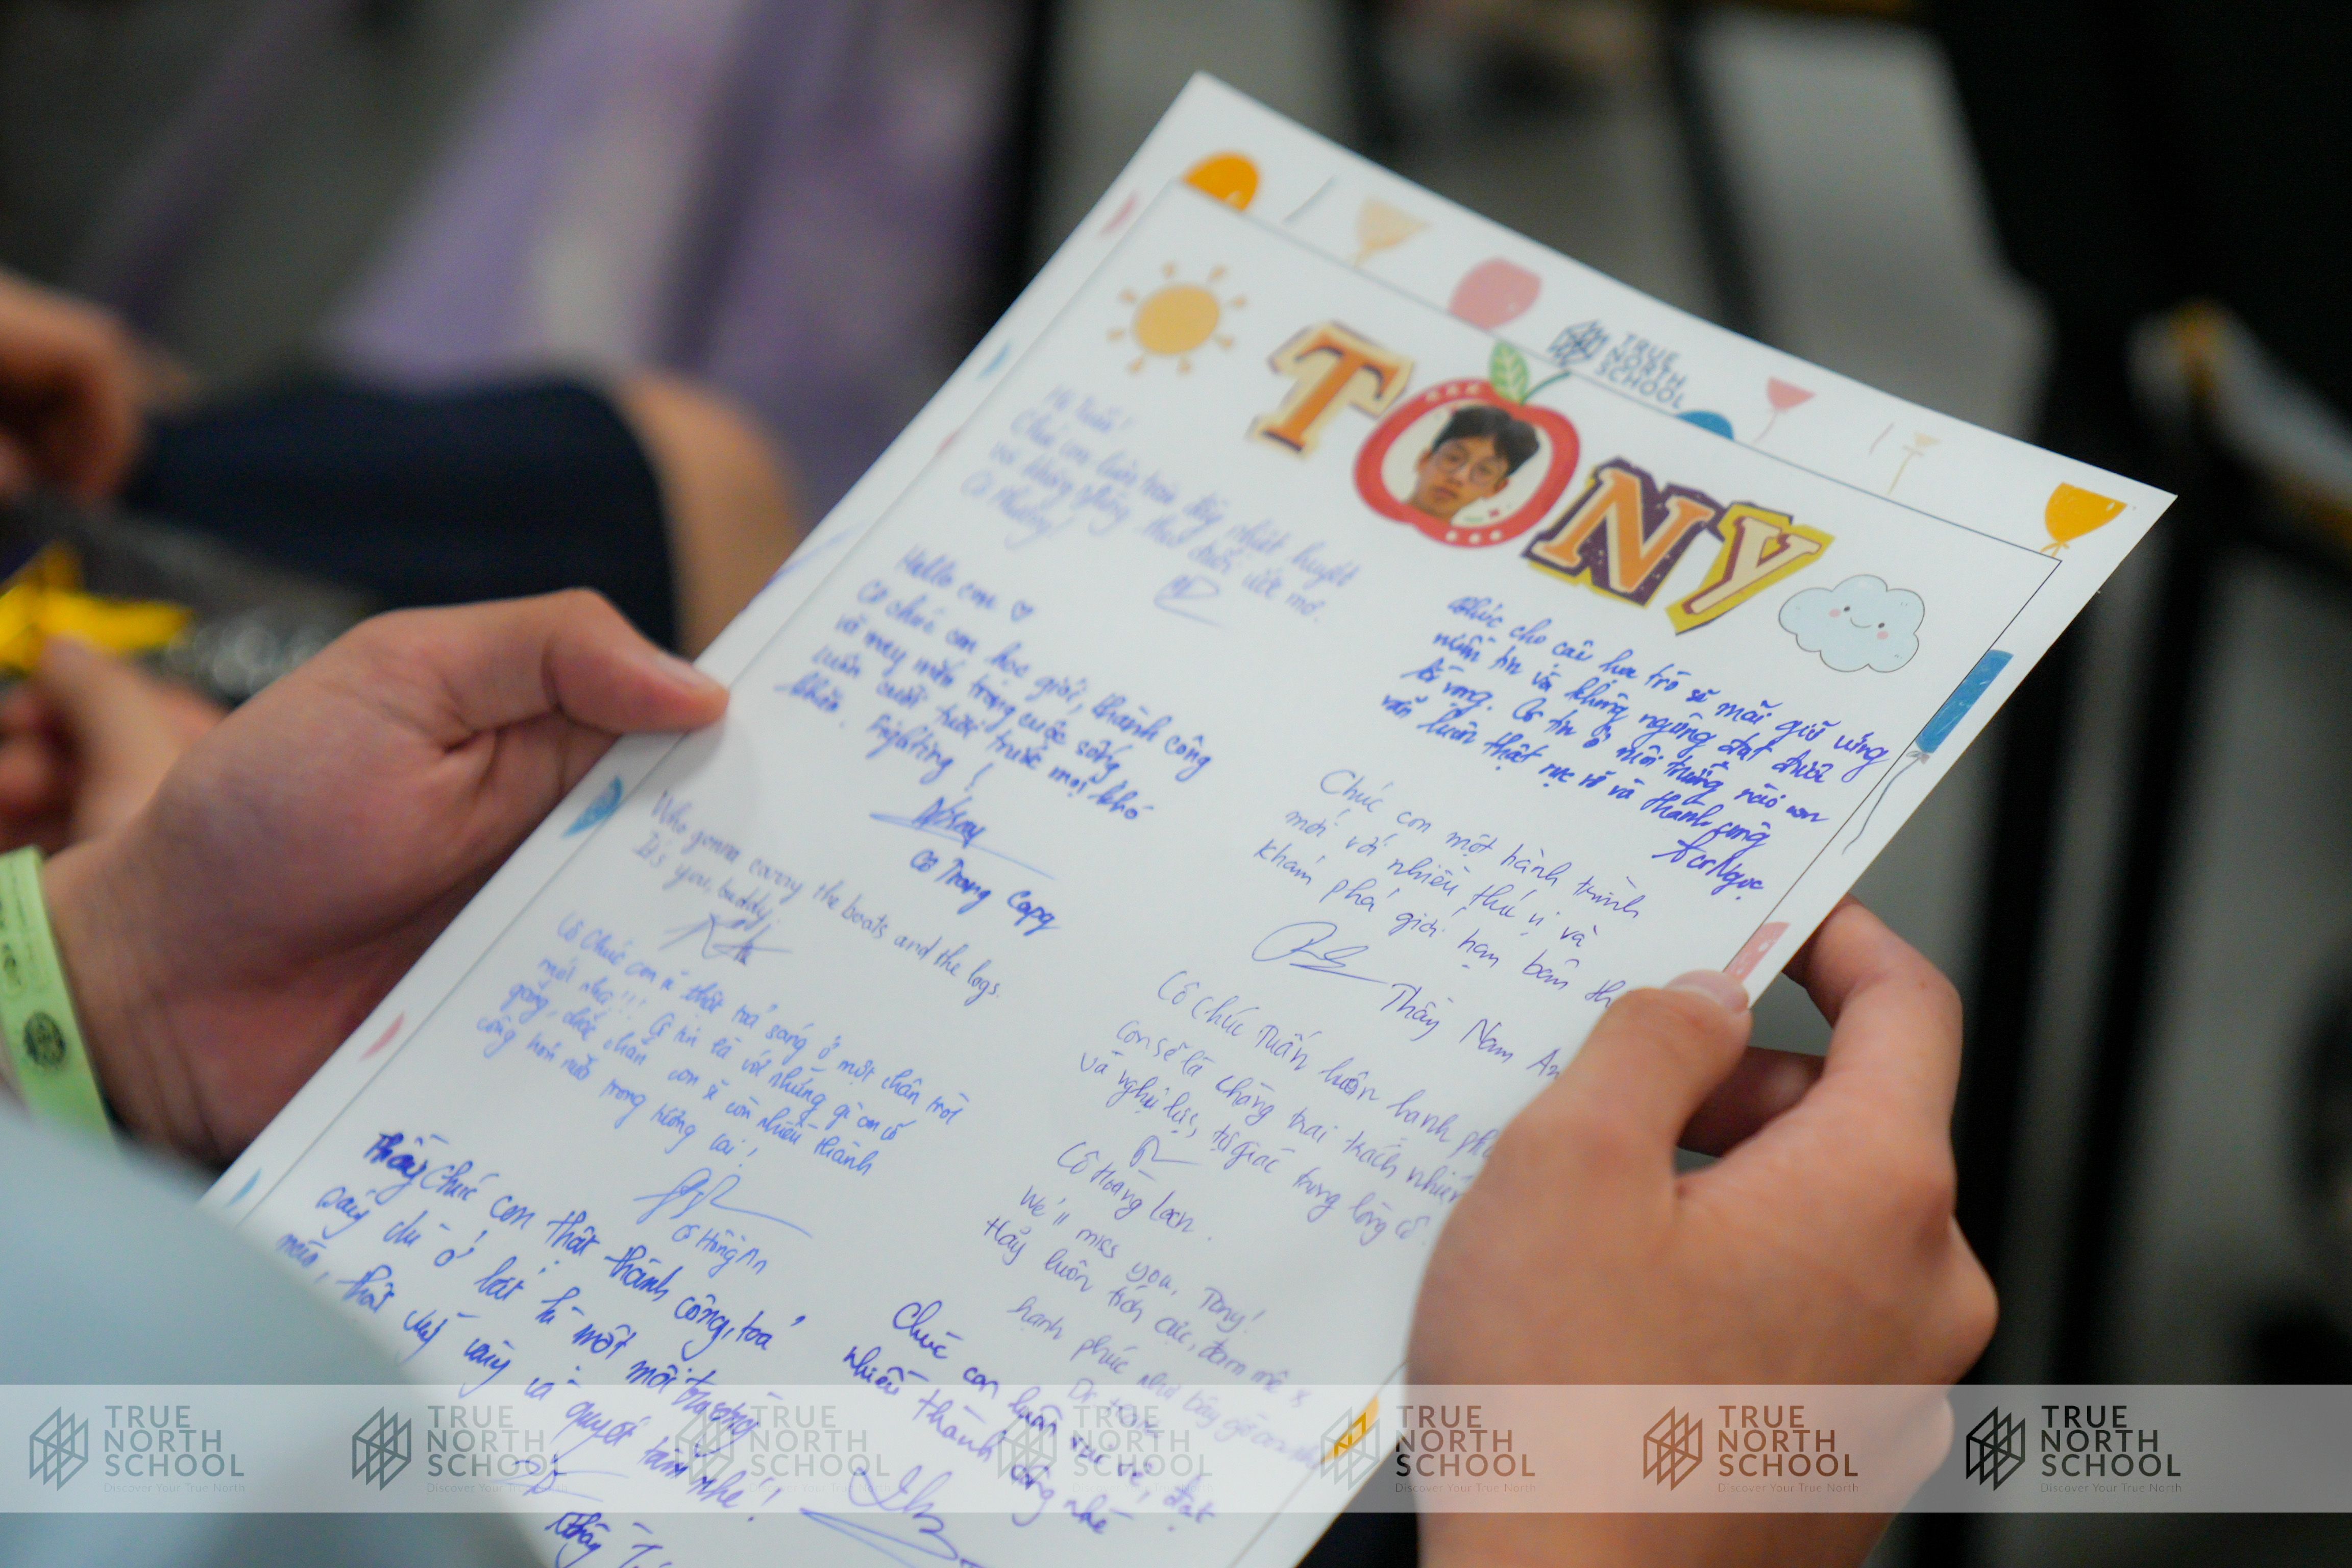 TRUE
NORTH
SCHOOL
TONY
Hi Tuấn!
Chúc con luôn tràn đầy nhiệt huyết
và không ngừng theo đuổi ước mơ.
Cô
Hello con ♡
Cô chúc con học giỏi, thành công
và may mắn trong cuộc sống
luôn cười tươi trước mọi khó
khăn. Fighting!
Cô Trang
Who gonna carry the boats and the logs.
It's you, buddy.
Cô chúc con sẽ thật toả sáng ở một chân trời
mới nha!!! Cô tin là với những gì con cố
gắng, chắc chắn con sẽ còn nhiều thành
công hơn nữa trong tương lai!
Cô Hồng An
Thầy chúc con thật thành công, toả
sáng dù ở bất kì một môi trường
nào, thật vững vàng và quyết tâm nhé!
Thầy
Chúc cho cậu học trò sẽ mãi giữ vững
niềm tin và không ngừng đạt được
kì vọng. Cô tin ở môi trường nào con
vẫn luôn thật rực rỡ và thành công
Ngọc
Chúc con một hành trình
mới với nhiều thú vị và
khám phá giới hạn bản th
Thầy Nam An
Cô chúc Tuấn luôn hạnh ph
Con sẽ là chàng trai trách nhiệm
và nghị lực, tự giác trong lòng cô.
Cô Hoàng Loan.
We'll miss you, Tony!
Hãy luôn tích cực, đam mê &
hạnh phúc như bây giờ con nhé
Chúc con luôn vui vẻ, đạt
nhiều thành công nhé
TRUE
NORTH
SCHOOL
Discover Your True North
TRUE
NORTH
SCHOOL
Discover Your True North
TRUE
NORTH
SCHOOL
Discover Your True North
TRUE
NORTH
SCHOOL
Discover Your True North
TRUE
NORTH
SCHOOL
Discover Your True North
TRUE
NORTH
SCHOOL
Discover Your True North
TRUE
NORTH
SCHOOL
Discover Your True North